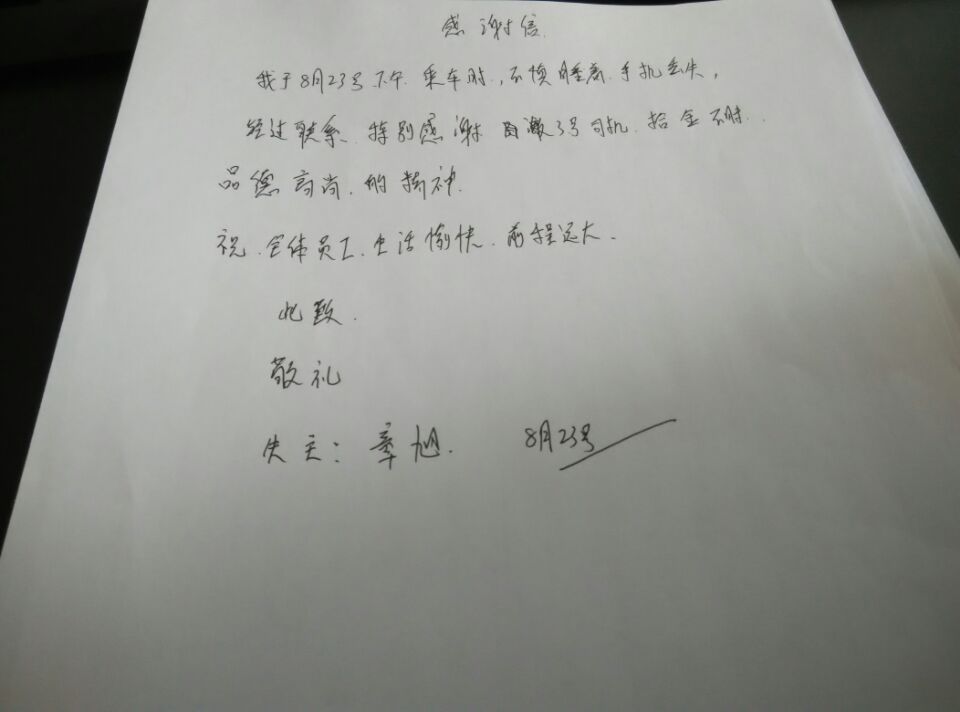 感谢信
我于8月23号下午.乘车时,不慎睡着.手机丢失,
经过联系.特别感谢 3号司机.拾金不昧..
品德高尚.的精神.
祝.全体员工.生活愉快.前程远大.
此致.
敬礼
失主:章旭. 8月23号